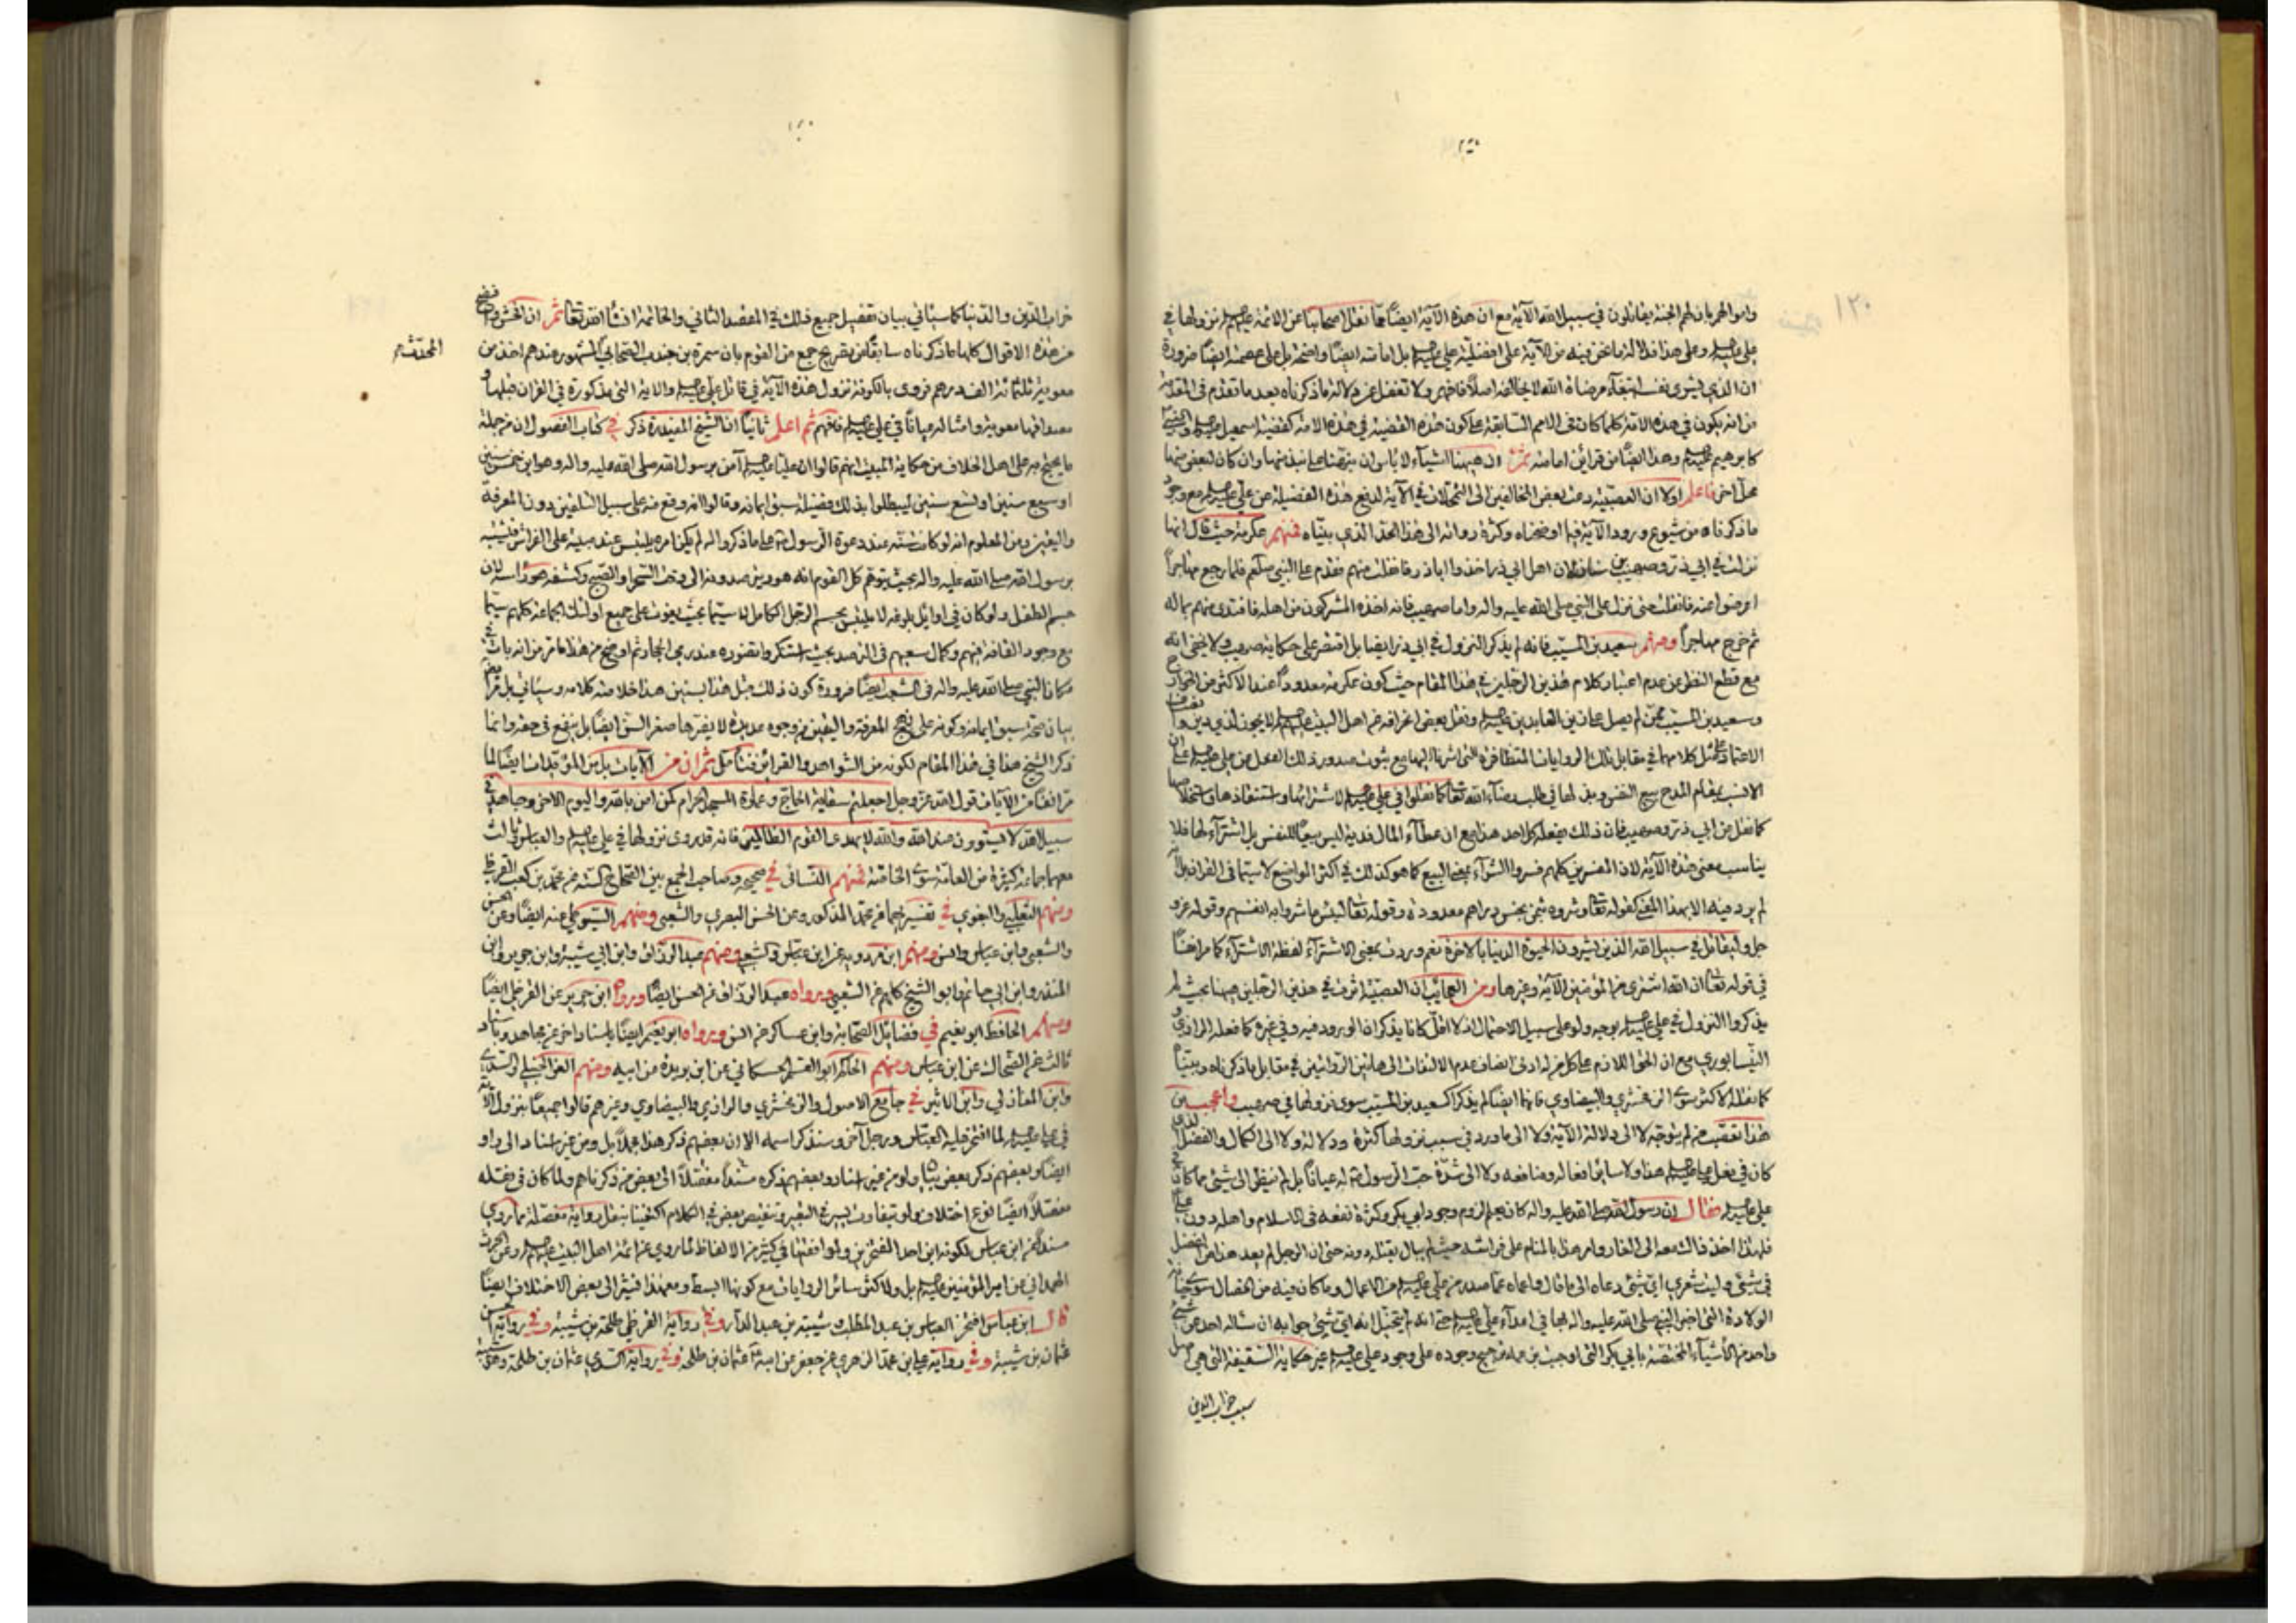 ١٢٠
واموالهم بان لهم الجنة يقاتلون في سبيل الله الآية مع ان هذه الآية ايضا مما نقل اصحابنا عن الائمة نزولها في
علي وعلى هذا فدلالة ما نحن فيه من الآية على افضلية علي بل امامته ايضا واضحة بل على عصمته ايضا ضرورة
ان الذي يشرى نفسه ابتغاء مرضاة الله لا يخالفه اصلا فافهم ولا تغفل عن دلالة ما ذكرناه بعد ما تقدم في المقدمة
من انه يكون في هذه الامة كلما كان في الامم السابقة على كون هذه القضية في هذه الامة كقضية اسمعيل
كابرهيم وهذا ايضا من قرائن امامته ثم ان ههنا اشياء لا باس ان ننبه على نبذ منها وان كان لبعض منها
محل اخر فاعلم اولا ان العصبية دعت بعض المخالفين الى التمحلات في الآية لدفع هذه الفضيلة عن علي مع وجود
ما ذكرناه من شيوع ورود الآية فيما اوضحناه وكثرة رواته الى هذا الحد الذي بيناه فمنهم عكرمة حيث قال انها
نزلت في ابي ذر وصهيب بن سنان لان اهل ابي ذر اخذوا اباذر فانفلت منهم فقدم على النبي فلما رجع مهاجرا
اعرضوا عنه فانفلت حتى نزل على النبي صلى الله عليه واله واما صهيب فانه اخذه المشركون من اهله فافتدى منهم بماله
ثم خرج مهاجرا ومنهم سعيد بن المسيب فانه لم يذكر النزول في ابي ذر ايضا بل اقتصر على حكاية صهيب ولا يخفى انه
مع قطع النظر عن عدم اعتبار كلام هذين الرجلين في هذا المقام حيث كون عكرمة معدودا عند الاكثر من الخوارج
وسعيد بن المسيب ممن لم يصل على زين العابدين ونقل بعض انحرافه عن اهل البيت لا يجوز لذي دين
الاعتماد على مثل كلامهما في مقابل تلك الروايات المتظافرة التي اشرنا اليها مع ثبوت صدور ذلك الفعل من علي على ان
الانسب بمقام المدح بيع النفس وبذلها في طلب رضاء الله تعالى كما نقلوا في علي لا شرائها واستنقاذها واستخلاصها
كما نقل عن ابي ذر وصهيب فان ذلك يفعله كل احد هذا مع ان عطاء المال فدية ليس بيعا للنفس بل اشتراء لها فلا
يناسب معنى هذه الآية لان المفسرين كلهم فسروا الشراء بمعنى البيع كما هو كذلك في اكثر المواضع لا سيما في القران بل انه
لم يرد فيه الا بهذا المعنى كقوله تعالى وشروه بثمن بخس دراهم معدودة وقوله تعالى لبئس ما شروا به انفسهم وقوله عز و
جل وليقاتل في سبيل الله الذين يشرون الحيوة الدنيا بالاخرة نعم وردت بمعنى الاشتراء لفظة الاشتراء كما مر اخذا
في قوله تعالى ان الله اشترى من المؤمنين الآية وغيرها ومن العجايب ان العصبية اثرت في هذين الرجلين ههنا بحيث لم
يذكروا النزول في علي بوجه ولو على سبيل الاحتمال اذ لا اقل كانا يذكران الورود فيه وفي غيره كما فعله الرازي و
النيسابوري مع ان الحق اللازم على كل من له ادنى انصاف عدم الالتفات الى هاتين الروايتين في مقابل ما ذكرناه وبينا
كما نقله الاكثر سوى الزمخشري والبيضاوي فانهما ايضا لم يذكرا كسعيد بن المسيب سوى نزولها في صهيب واعجب من
هذا تعصب من لم يتوجه لا الى دلالة الآية ولا الى ما ورد في سبب نزولها كثرة ودلالة ولا الى الكمال والفضل الذي
كان في فعل علي هذا ولا سائر افعاله ومنافعه ولا الى شدة حب الرسول له عيانا بل لم ينظر الى شيء مما كان
علي فقال ان رسول الله صلى الله عليه واله كان يعلم لزوم وجود ابي بكر وكثرة نفعه في الاسلام واهله دون علي
فلهذا اخذ ذاك معه الى الغار وامر هذا بالمنام على فراشه حيث لم يبال بقتله دونه حتى ان الرجل لم يعد هذا من الفضل
في شيء وليت شعري اي شيء دعاه الى ما قال واعماه عما صدر من علي من الاعمال وما كان فيه من الخصال سوى خباثة
الولادة التي اخبر النبي صلى الله عليه واله بها في اعداء علي حتى انه لم يتخيل انه اي شيء جوابه ان سأله احد عن شيء
واحد من الاشياء المختصة بابي بكر التي اوجبت من عنده ترجيح وجوده على وجود علي غير حكاية السقيفة التي هي اصل
سبب خراب الدين
خراب الدين والدنيا كما سيأتي بيان تفصيل جميع ذلك في المقصد الثاني والخاتمة انشاء الله تعالى ثم ان افحش وافضح
من هذه الاقوال كلها ما ذكرناه سابقا من تصريح جمع من القوم بان سمرة بن جندب الصحابي المشهور عندهم اخذ من
المحدث
معوية ثلثمائة الف درهم فروى بالكوفة نزول هذه الآية في قاتل علي والاية التي مذكورة في القران قبلها و
معناها معوية وامثاله عيانا في علي فافهم ثم اعلم ثانيا ان الشيخ المفيد ره ذكر في كتاب الفصول ان من جملة
ما يحتج به على اهل الخلاف من حكاية المبيت انهم قالوا ان عليا آمن برسول الله صلى الله عليه واله وهو ابن خمس سنين
او سبع سنين او تسع سنين ليبطلوا بذلك فضيلة سبق ايمانه وقالوا انه وقع منه على سبيل التلقين دون المعرفة
واليقين ومن المعلوم انه لو كانت سنه عند دعوة الرسول على ما ذكروا له لم يكن امره يلتبس عند مبيته على الفراش فيشبه
برسول الله صلى الله عليه واله بحيث يتوهم كل القوم انه هو يترصدونه الى وقت السحر او الصبح وكشفه عن راسه لان
جسم الطفل ولو كان في اوايل بلوغه لا يلتبس بجسم الرجل الكامل لا سيما بحيث يفوت على جميع اولئك الجماعة كلهم سيما
مع وجود القافة فيهم وكمال سعيهم في الترصد بحيث استنكروا تضوره عند رمي الحجارة ثم اوضح من هذا ما مر من انه بات في
مكان النبي صلى الله عليه واله في الشعب ايضا ضرورة كون ذلك قبل هذا بسنين هذا خلاصة كلامه وسيأتي بل مر ايضا
بيان صحة سبق ايمانه وكونه على نهج المعرفة واليقين من وجوه عديدة لا يضرها صغر السن ايضا بل ينفع في حقه وانما
ذكر الشيخ هذا في هذا المقام لكونه من الشواهد والقرائن فتأمل ثم ان من الآيات بل من المؤيدات ايضا لما
مر انفا من الآيات قول الله عز وجل اجعلتم سقاية الحاج وعمارة المسجد الحرام كمن آمن بالله واليوم الاخر وجاهد في
سبيل الله لا يستوون عند الله والله لا يهدي القوم الظالمين فانه قد روى نزولها في علي والعباس ثالث
معهما جماعة كثيرة من العامة سوى الخاصة فمنهم النسائي في صحيحه وصاحب الجمع بين الصحاح الستة عن محمد بن كعب القرظي
ومنهم الثعلبي والبغوي في تفسيريهما عن محمد المذكور وعن الحسن البصري والشعبي ومنهم السيوطي عنه ايضا وعن الحسن
والشعبي وابن عباس وانس ومنهم ابن مردويه عن ابن عباس والشعبي ومنهم عبد الرزاق وابن ابي شيبة وابن جرير وابن
المنذر وابن ابي حاتم وابو الشيخ كلهم عن الشعبي ورواه عبد الرزاق عن الحسن ايضا ورواه ابن جرير عن القرظي ايضا
ومنهم الحافظ ابو نعيم في فضائل الصحابة وابن عساكر عن انس ورواه ابو نعيم ايضا باسناد اخر عن مجاهد وباسناد
ثالث عن الضحاك عن ابن عباس ومنهم الحاكم ابو القسم الحسكاني عن ابن بريدة عن ابيه ومنهم العز الحنبلي والسدي
وابن المغازلي وابن الاثير في جامع الاصول والزمخشري والرازي والبيضاوي وغيرهم قالوا جميعا بنزول الآية
في علي لما افتخر عليه العباس ورجل آخر وسنذكر اسمه الا ان بعضهم ذكر هذا مجملا بل ومن غير اسناد الى راو
ايضا وبعضهم ذكر بعض بيان ولو من غير اسناد وبعضهم ذكره مسندا مفصلا الى بعض من ذكرناهم ولما كان في نقله
مفصلا ايضا نوع اختلاف ولو بتفاوت يسير في التعبير وتنقيص بعض في الكلام اكتفينا بنقل رواية مفصلة مما روي
مسندا عن ابن عباس لكونه ابن احد المفتخرين ولموافقتها في كثير من الالفاظ لما روي عن ائمة اهل البيت وعن الحرث
الهمداني عن امير المؤمنين بل ولاكثر سائر الروايات مع كونها ابسط ومعهذا نشير الى بعض الاختلاف ايضا
قال ابن عباس افتخر العباس بن عبد المطلب وشيبة بن عبد الدار وفي رواية القرظي طلحة بن شيبة وفي رواية الحسن
عثمان بن شيبة وفي رواية محمد الزهري عن جعفر عن ابيه عثمان بن طلحة وفي رواية السدي عثمان بن طلحة و شيبة